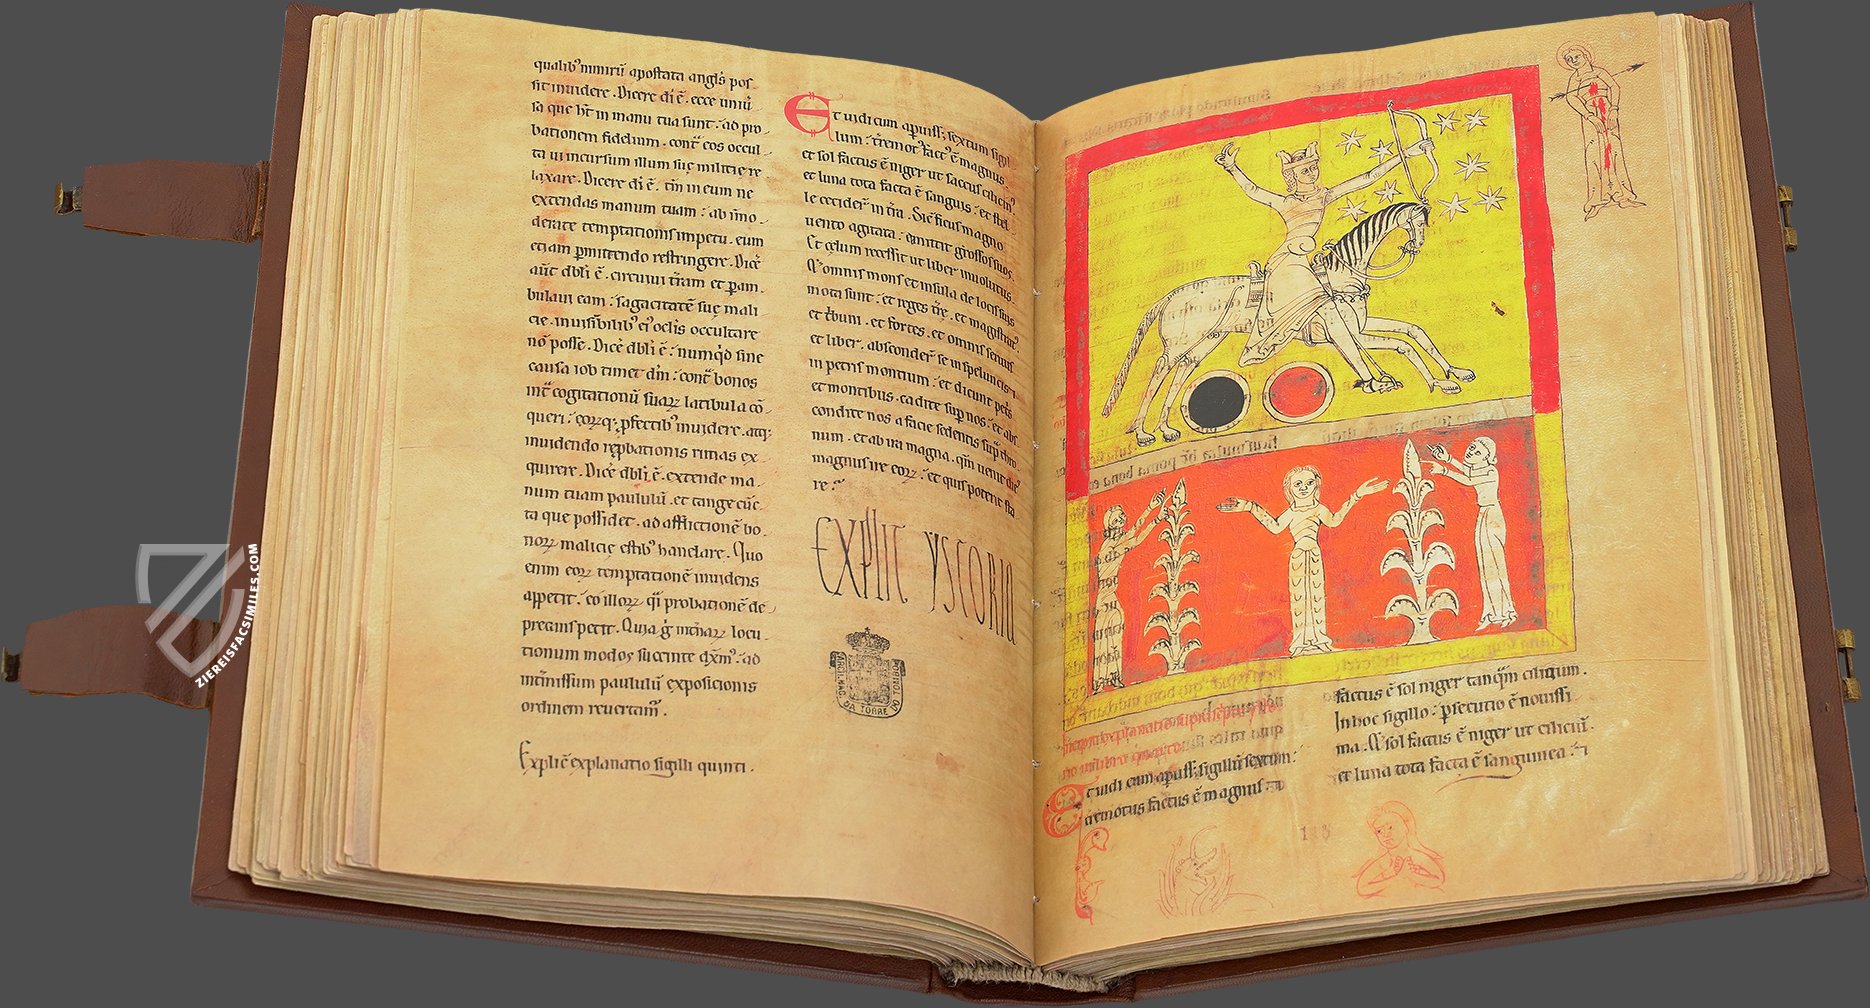 qualib' nimirũ apostata angl's pos
sit inuidere. Dicere di ẽ. ecce uniũ
sa que ht in manu tua sunt: ad pro
bationem fidelium. contͣ eos occul
ta ui incursum illum suę militię re
laxare. Dicere di ẽ. tm̃ in eum ne
extendas manum tuam: ab im̃o
derate temptationis impetu. eum
etiam ꝑmittendo restringere. Dicẽ
aũt dbli ẽ. circuiui tr̃am et ꝑam
bulaui eam: sagacitatẽ suę mali
cie. inuisibilib' ei' oclis occultare
nõ posse. Dicẽ dbli ẽ: numq̇d sine
causa iob timet dm̃: contͣ bonos
int̃ cogitationũ suaꝝ latibula cõ
queri: eoꝝq; ꝓfectib' inuidere. atq;
inuidendo reꝓbationis rimas ex
quirere. Dicẽ dbli ẽ. extende ma
num tuam paululũ. et tange cũc
ta que possidet. ad afflictionẽ bo
noꝝ malicię estib' hanelare. Quo
enim eoꝝ temptationẽ inuidens
appetit: eo illoꝝ qͥ probationẽ de
precans petit. Quia g̊ int̃naꝝ locu
tionum modos succinte dx̃im': ad
int̃missum paululũ exposicionis
ordinem reuertam̃.
Explic̃ explanatio sigilli quinti.
Et uidi cum apuiss: sextum sigil
lum: t̃remot' fact' ẽ magnus
et sol factus ẽ niger ut saccus cilicin'
et luna tota facta ẽ sanguis: et stel
le cecider̃ in t̃ra. Sic̃ ficus magno
uento agitata: amittit grossos suos.
Et cęlum recessit ut liber inuolutus.
& omnis mons et insula de locis suis
mota sunt: et reges t̃re. et magistrat'
et t̃buni. et fortes. et omnis seruus
et liber. absconder̃ se in speluncis
in petris montium: et dicunt petͥs
et montibus. cadite sup nos: et abs
condite nos a facie sedentis sup̃ thro
num. et ab ira magna. qm̃ uenit die'
magnus irę eoꝝ: et quis poterit sta
re:
EXPLIC YSCORIA
DA TORRE DO
ZIEREISFACSIMILES.COM
Et uidi cum apuiss: sigillũ sextum:
t̃remotus factus ẽ magnus:
factus ẽ sol niger tanq̃m cilicium.
In hoc sigillo: ꝑsecutio ẽ nouissi
ma. & sol factus ẽ niger ut ciliciũ.
et luna tota facta ẽ sanguinea: